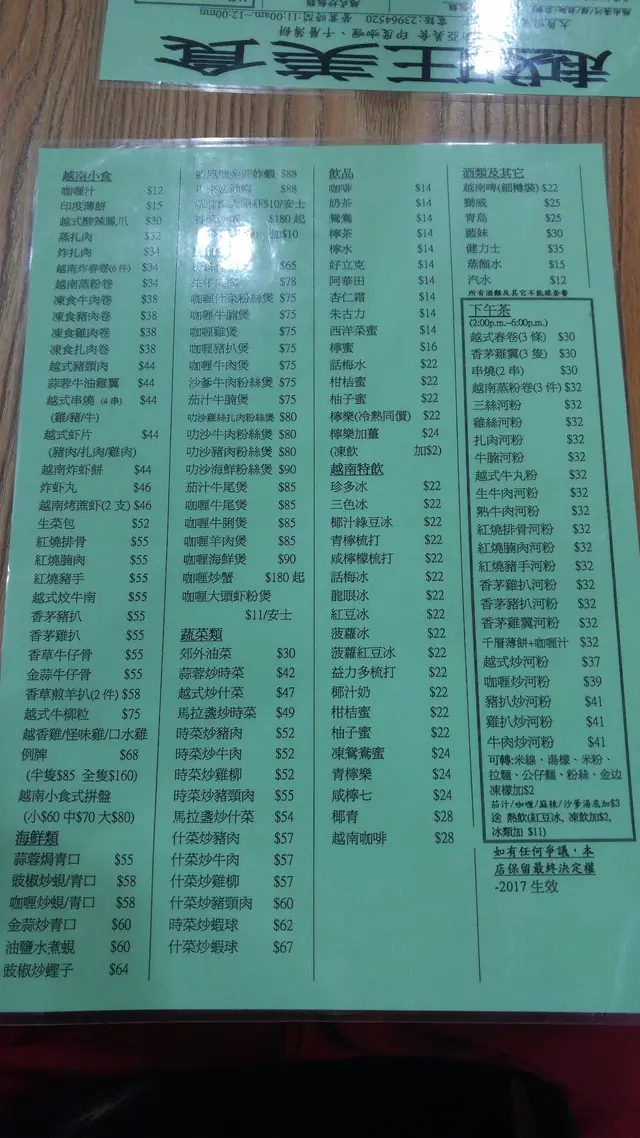 越南小食
咖喱汁 $12
印度薄餅 $15
越式酸辣鳳爪 $30
蒸扎肉 $32
炸扎肉 $34
越南炸春卷(6件) $34
越南蒸粉卷 $34
凍食牛肉卷 $38
凍食豬肉卷 $38
凍食雞肉卷 $38
凍食扎肉卷 $38
越式豬頸肉 $44
蒜蓉牛油雞翼 $44
越式串燒 (4串) $44
(雞/豬/牛)
越式虾片 $44
(豬肉/扎肉/雞肉)
越南炸虾餅 $44
炸虾丸 $46
越南烤蔗虾(2支) $46
生菜包 $52
紅燒排骨 $55
紅燒腩肉 $55
紅燒豬手 $55
越式炆牛南 $55
香茅豬扒 $55
香茅雞扒 $55
香草牛仔骨 $55
金蒜牛仔骨 $55
香草煎羊扒(2件) $58
越式牛柳粒 $75
越香雞/怪味雞/口水雞
例牌 $68
(半隻$85 全隻$160)
越南小食式拼盤
(小$60 中$70 大$80)
海鮮類
蒜蓉焗青口 $55
豉椒炒蜆/青口 $58
咖喱炒蜆/青口 $58
金蒜炒青口 $60
油鹽水煮蜆 $60
豉椒炒蟶子 $64
$88
$88
$10/安士
$180 起
加$10
$65
$78
咖喱什菜粉絲煲 $75
咖喱牛腩煲 $75
咖喱雞煲 $75
咖喱豬扒煲 $75
咖喱牛肉煲 $75
沙爹牛肉粉絲煲 $75
茄汁牛腩煲 $75
叻沙雞絲扎肉粉絲煲 $80
叻沙牛肉粉絲煲 $80
叻沙豬肉粉絲煲 $80
叻沙海鮮粉絲煲 $90
茄汁牛尾煲 $85
咖喱牛尾煲 $85
咖喱牛脷煲 $85
咖喱羊肉煲 $85
咖喱海鮮煲 $90
咖喱炒蟹 $180 起
咖喱大頭虾粉煲
$11/安士
蔬菜類
郊外油菜 $30
蒜蓉炒時菜 $42
越式炒什菜 $47
馬拉盞炒時菜 $49
時菜炒豬肉 $52
時菜炒牛肉 $52
時菜炒雞柳 $52
時菜炒豬頸肉 $55
馬拉盞炒什菜 $54
什菜炒豬肉 $57
什菜炒牛肉 $57
什菜炒雞柳 $57
什菜炒豬頸肉 $60
時菜炒蝦球 $62
什菜炒蝦球 $67
飲品
咖啡 $14
奶茶 $14
鴛鴦 $14
檸茶 $14
檸水 $14
好立克 $14
阿華田 $14
杏仁霜 $14
朱古力 $14
西洋菜蜜 $14
檸蜜 $16
話梅水 $22
柑桔蜜 $22
柚子蜜 $22
檸樂(冷熱同價) $22
檸樂加薑 $24
(凍飲 加$2)
越南特飲
珍多冰 $22
三色冰 $22
椰汁綠豆冰 $22
青檸梳打 $22
咸檸檬梳打 $22
話梅冰 $22
龍眼冰 $22
紅豆冰 $22
菠蘿冰 $22
菠蘿紅豆冰 $22
益力多梳打 $22
椰汁奶 $22
柑桔蜜 $22
柚子蜜 $22
凍鴛鴦蜜 $24
青檸樂 $24
咸檸七 $24
椰青 $28
越南咖啡 $28
酒類及其它
越南啤(細樽裝) $22
獅威 $25
青島 $25
藍妹 $30
健力士 $35
蒸餾水 $15
汽水 $12
所有酒類及其它不能跟套餐
下午茶
(2:00p.m.-6:00p.m.)
越式春卷(3條) $30
香茅雞翼(3隻) $30
串燒(2串) $30
越南蒸粉卷(3件) $32
三絲河粉 $32
雞絲河粉 $32
扎肉河粉 $32
牛腩河粉 $32
越式牛丸粉 $32
生牛肉河粉 $32
熟牛肉河粉 $32
紅燒排骨河粉 $32
紅燒腩肉河粉 $32
紅燒豬手河粉 $32
香茅雞扒河粉 $32
香茅豬扒河粉 $32
香茅雞翼河粉 $32
千層薄餅+咖喱汁 $32
越式炒河粉 $37
咖喱炒河粉 $39
豬扒炒河粉 $41
雞扒炒河粉 $41
牛肉炒河粉 $41
可轉:米線、湯檬、米粉、
拉麵、公仔麵、粉絲、金边
凍檬加$2
茄汁/咖喱/麻辣/沙爹湯底加$3
送 熱飲(紅豆冰, 凍飲加$2,
冰類加 $11)
如有任何爭議，本
店保留最終決定權
-2017 生效